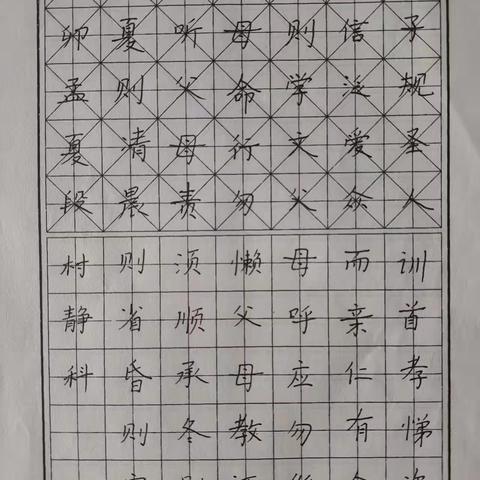 子规圣人训首孝悌
信泛爱众而亲仁有
则学文父母呼应勿
母命行勿懒父母教
听父母责须顺承冬
夏则清晨则省昏则
卯孟夏段村静科